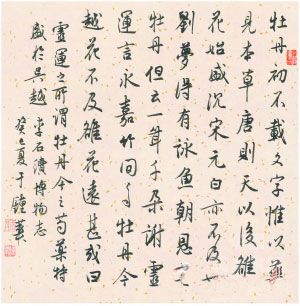 牡丹初不載文字惟以藥
見本草唐則天以後雒
花始盛沈宋元白亦不及
劉夢得有詠魚朝恩宅
牡丹但云一叢千朵謝靈
運言永嘉竹間多牡丹今
越花不及雒花遠甚或曰
靈運之所謂牡丹今之芍藥特
盛於吳越 石漬博物志
癸巳夏于鐘華